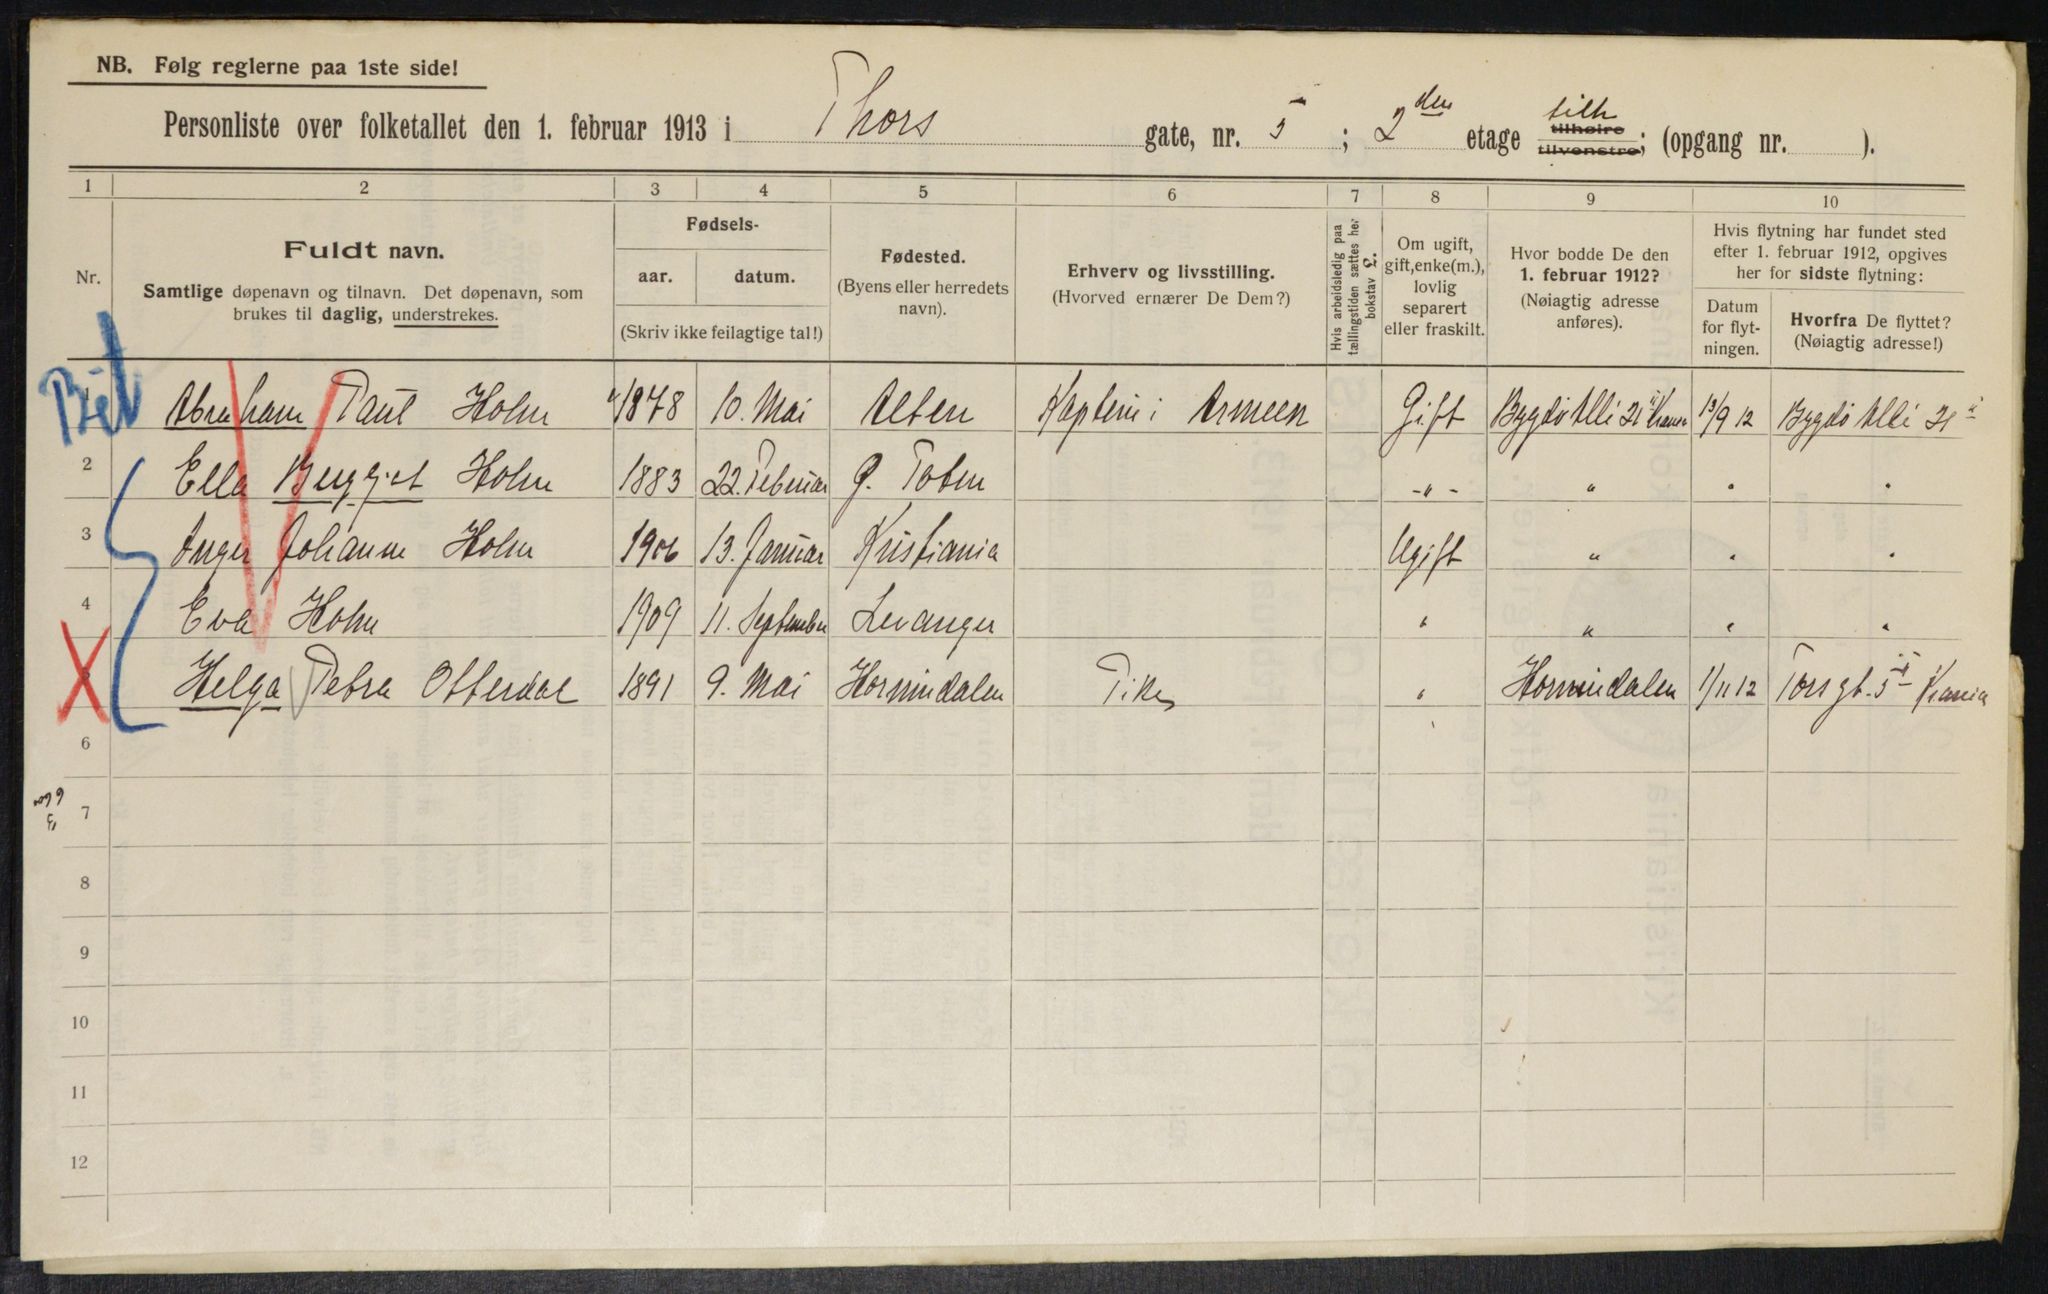 NB. Følg reglerne paa 1ste side!
Personliste over folketallet den 1. februar 1913 i Thors gate, nr. 5; 2den etage tilhøire tilvenstre; (opgang nr. ).
1 2 3 4 5 6 7 8 9 10
Nr.
Fuldt navn.
Samtlige døpenavn og tilnavn. Det døpenavn, som
brukes til daglig, understrekes.
Fødsels-
aar. datum.
(Skriv ikke feilagtige tal!)
Fødested.
(Byens eller herredets
navn).
Erhverv og livsstilling.
(Hvorved ernærer De Dem?)
Hvis arbeidsledig paa
tællingstiden sættes her
bokstav L.
Om ugift,
gift, enke(m.),
lovlig
separert
eller fraskilt.
Hvor bodde De den
1. februar 1912?
(Nøiagtig adresse
anføres).
Hvis flytning har fundet sted
efter 1. februar 1912, opgives
her for sidste flytning:
Datum
for flyt-
ningen.
Hvorfra De flyttet?
(Nøiagtig adresse!)
Bet
1 Abraham Paul Holm 1878 10. Mai Alten Kaptein i Armeen Gift Bygdø Allé 21 II 13/9 12 Bygdø Allé 21 II
2 Ella Holm 1883 22. Februar Ø. Toten -"- " " "
3 Inger Johanne Holm 1906 13. Januar Kristiania Ugift " " "
4 Eva Holm 1909 11. September Levanger " " " "
5 Helga Petra Otterdal 1891 9. Mai Hornindalen Pike " Hornindalen 1/11 12 Torsgt. 5 II Krania
6
7
8
9
10
11
12